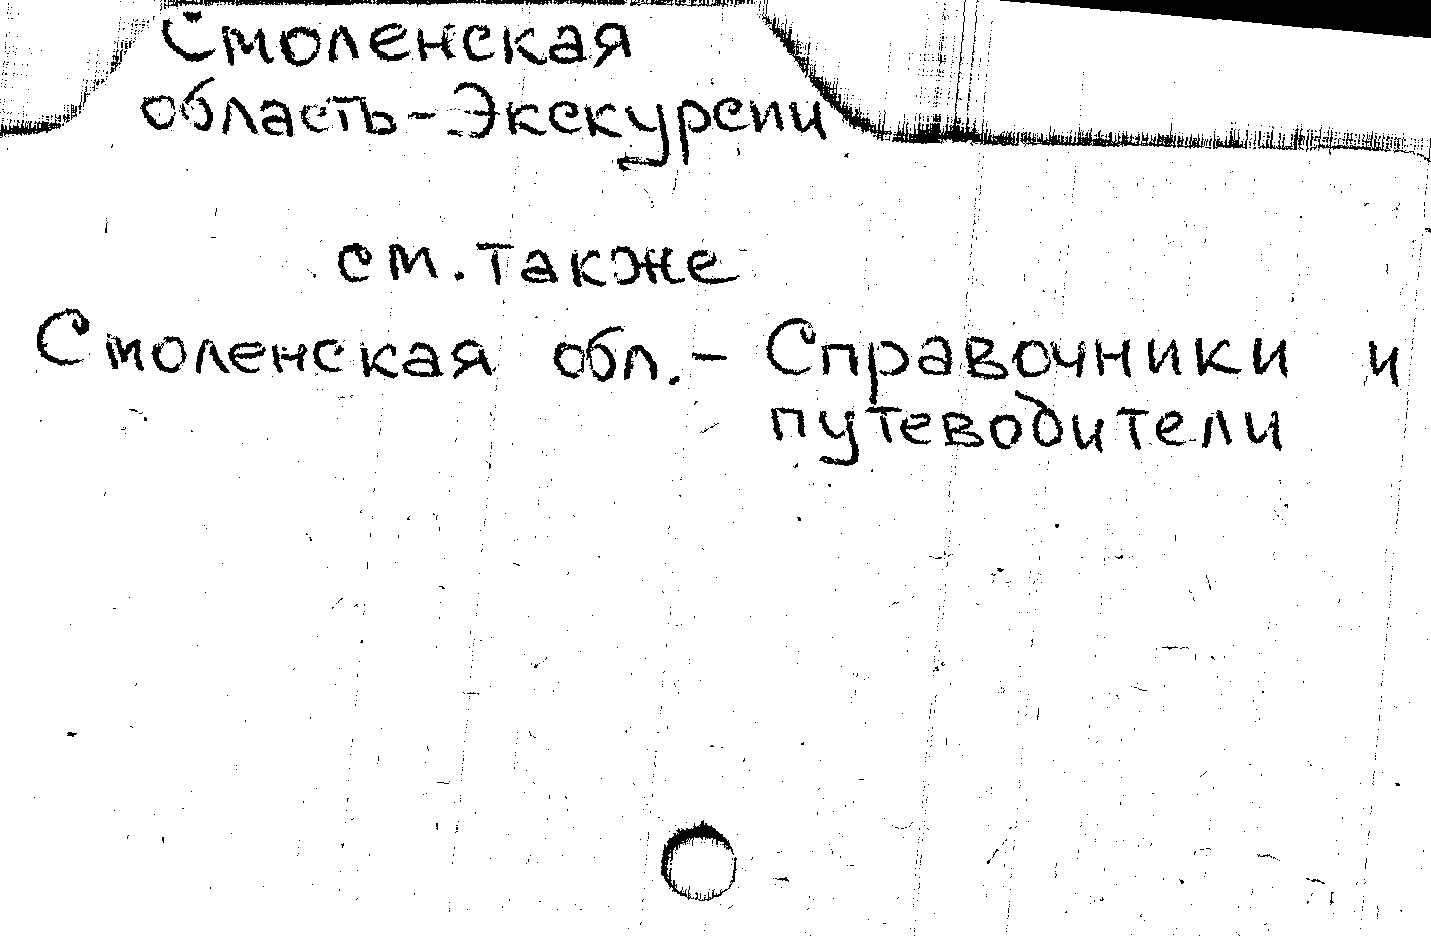 Смоленская
область-Экскурсии
см. также
Смоленская обл. - Справочники и
путеводители